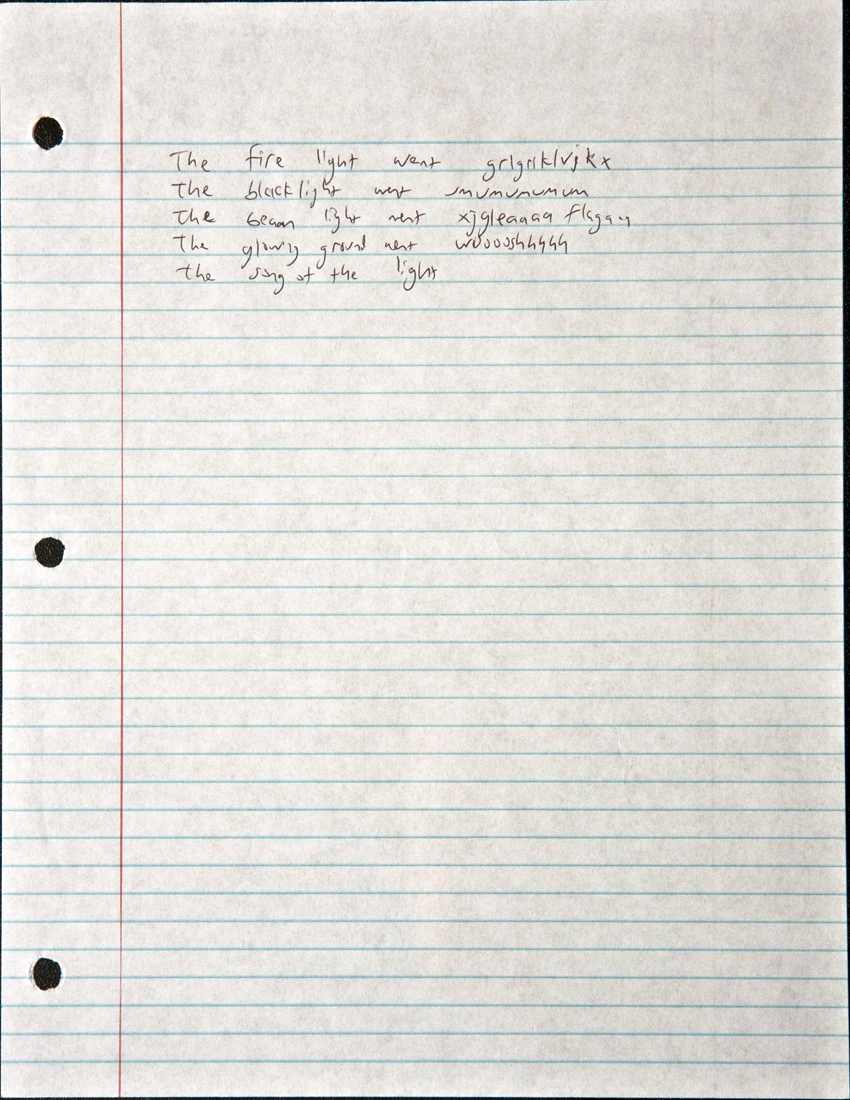 The fire light went grlgrlklvjkx
The blacklight went
The beam light went xjgleaaaa flagan
The glowing ground went woooshhhh
the song of the light